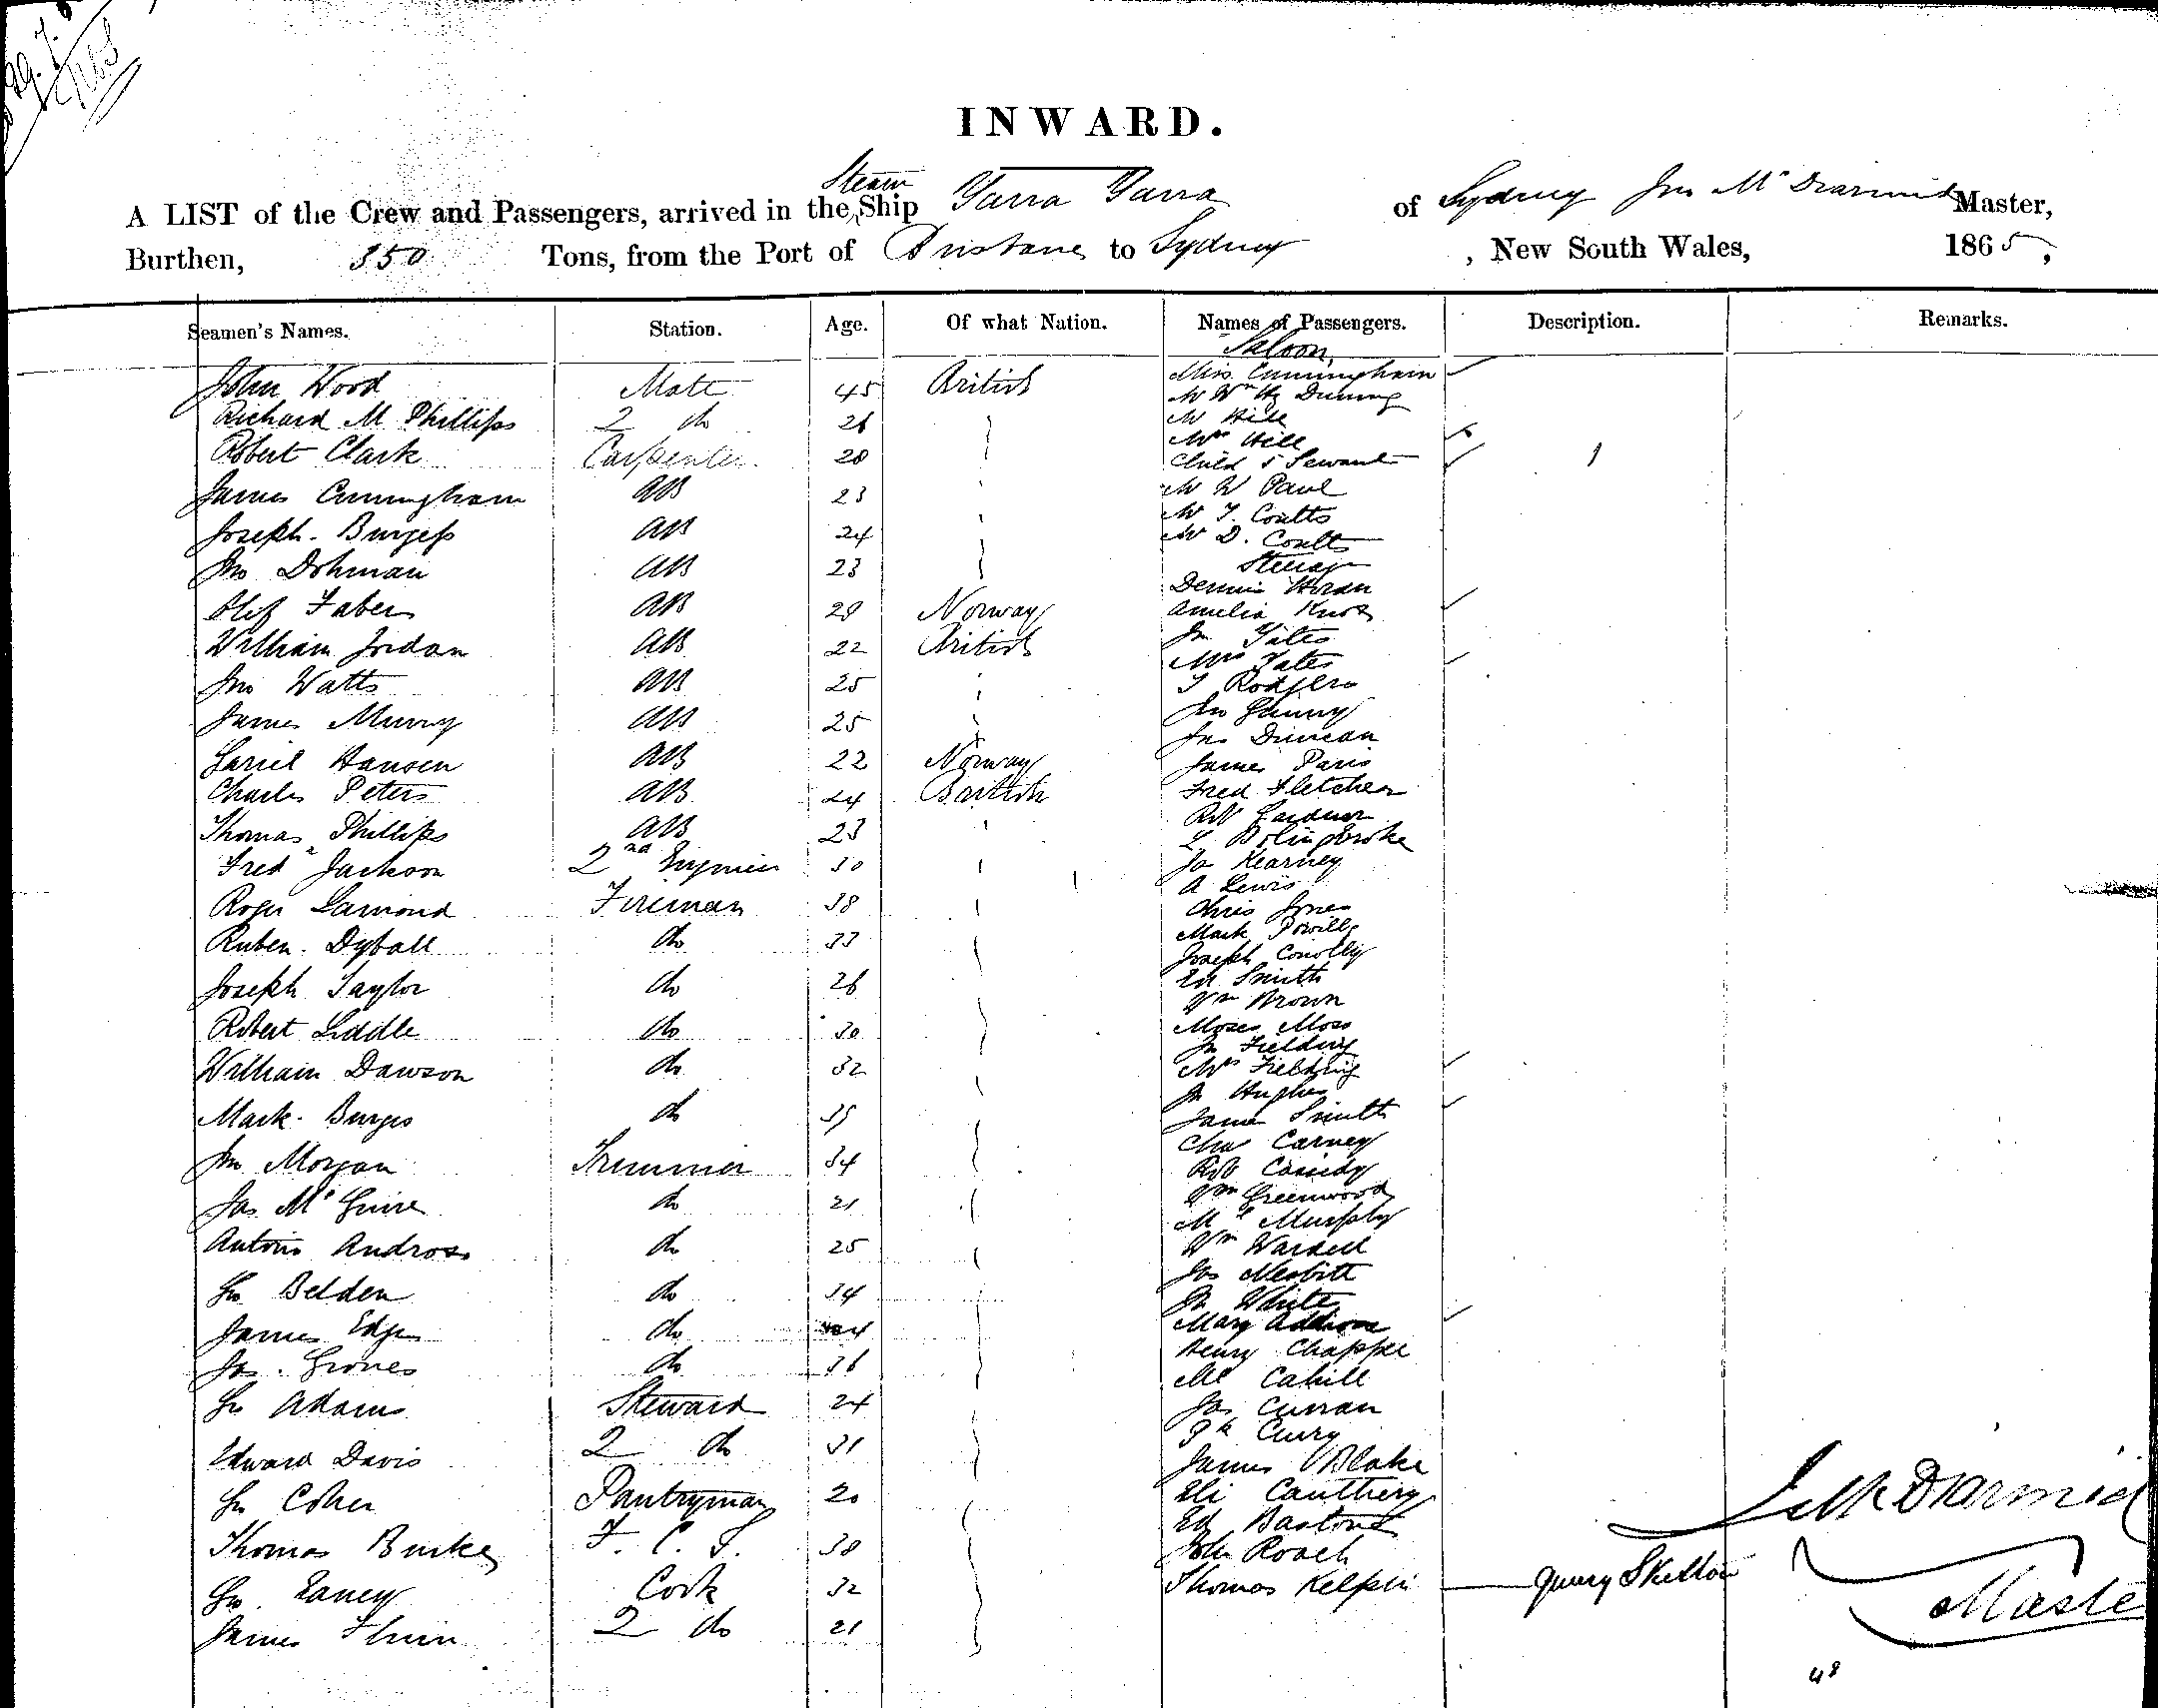 INWARD.
A LIST of the Crew and Passengers, arrived in the Steam Ship Yarra Yarra of Sydney Jno McDiarmid Master,
Burthen, 350 Tons, from the Port of Brisbane to Sydney, New South Wales, 1865,
Seamen's Names. Station. Age. Of what Nation. Names of Passengers. Description. Remarks.
Saloon
John Wood Mate 45 British Miss Cunningham
Mr Wm Hy Dunning
Richard M Phillips 2 do 26 Mr Hill
Mrs Hill
Robert Clark Carpenter 28 Child & Servant 1
James Cunningham AB 23 Mr W Paul
Mr T. Coutts
Joseph Burgess AB 24 Mr D. Coutts
Steerage
Jno Dohman AB 23 Dennis Horan
Olef Faber AB 28 Norway Amelia Knox
William Jordan AB 22 British Jn Yates
Mrs Yates
Jno Watts AB 25 T Rodgers
James Murray AB 25 Jno Gunny
Jas Duncan
Hansen AB 22 Norway James Paris
Charles Peters AB 24 British Fred Fletcher
Robt Gardner
Thomas Phillips AB 23 L Bolingbroke
Fred Jackson 2nd Engineer 30 Jas Kearney
A Lewis
Roger Lamond Fireman 38 Chris Jones
Ruben Dyball do 33 Mark Powell
Joseph Conolly
Joseph Taylor do 26 Ed Smith
Wm Brown
Robert Liddle do 30 Moses Moss
Jn Fielding
William Dawson do 32 Mrs Fielding
Jn Hughes
Mark Burges do 35 James Smith
Chas Carney
Jno Morgan Trimmer 34 Robt Cassidy
Jas McGuire do 21 Wm Greenwood
Ml Murphy
Antonio Andross do 25 Wm Wardell
Jas Nesbitt
Jno Belden do 34 Jn White
James Edge do Mary Addison
Jas. Groves do 36 Henry Chappel
Ml Cahill
Jno Adams Steward 24 Jas Curran
Edward Davis 2 do 31 Pk Curry
James Blake
Jno Cohen Pantryman 20 Eli Cauthery
Ed Baston
Thomas Burke F. C. S. 38 John Roach
Jno Laney Cook 32 Thomas Kelpin query Skelton
James 2 do 21
Jno McDiarmid
Master
48